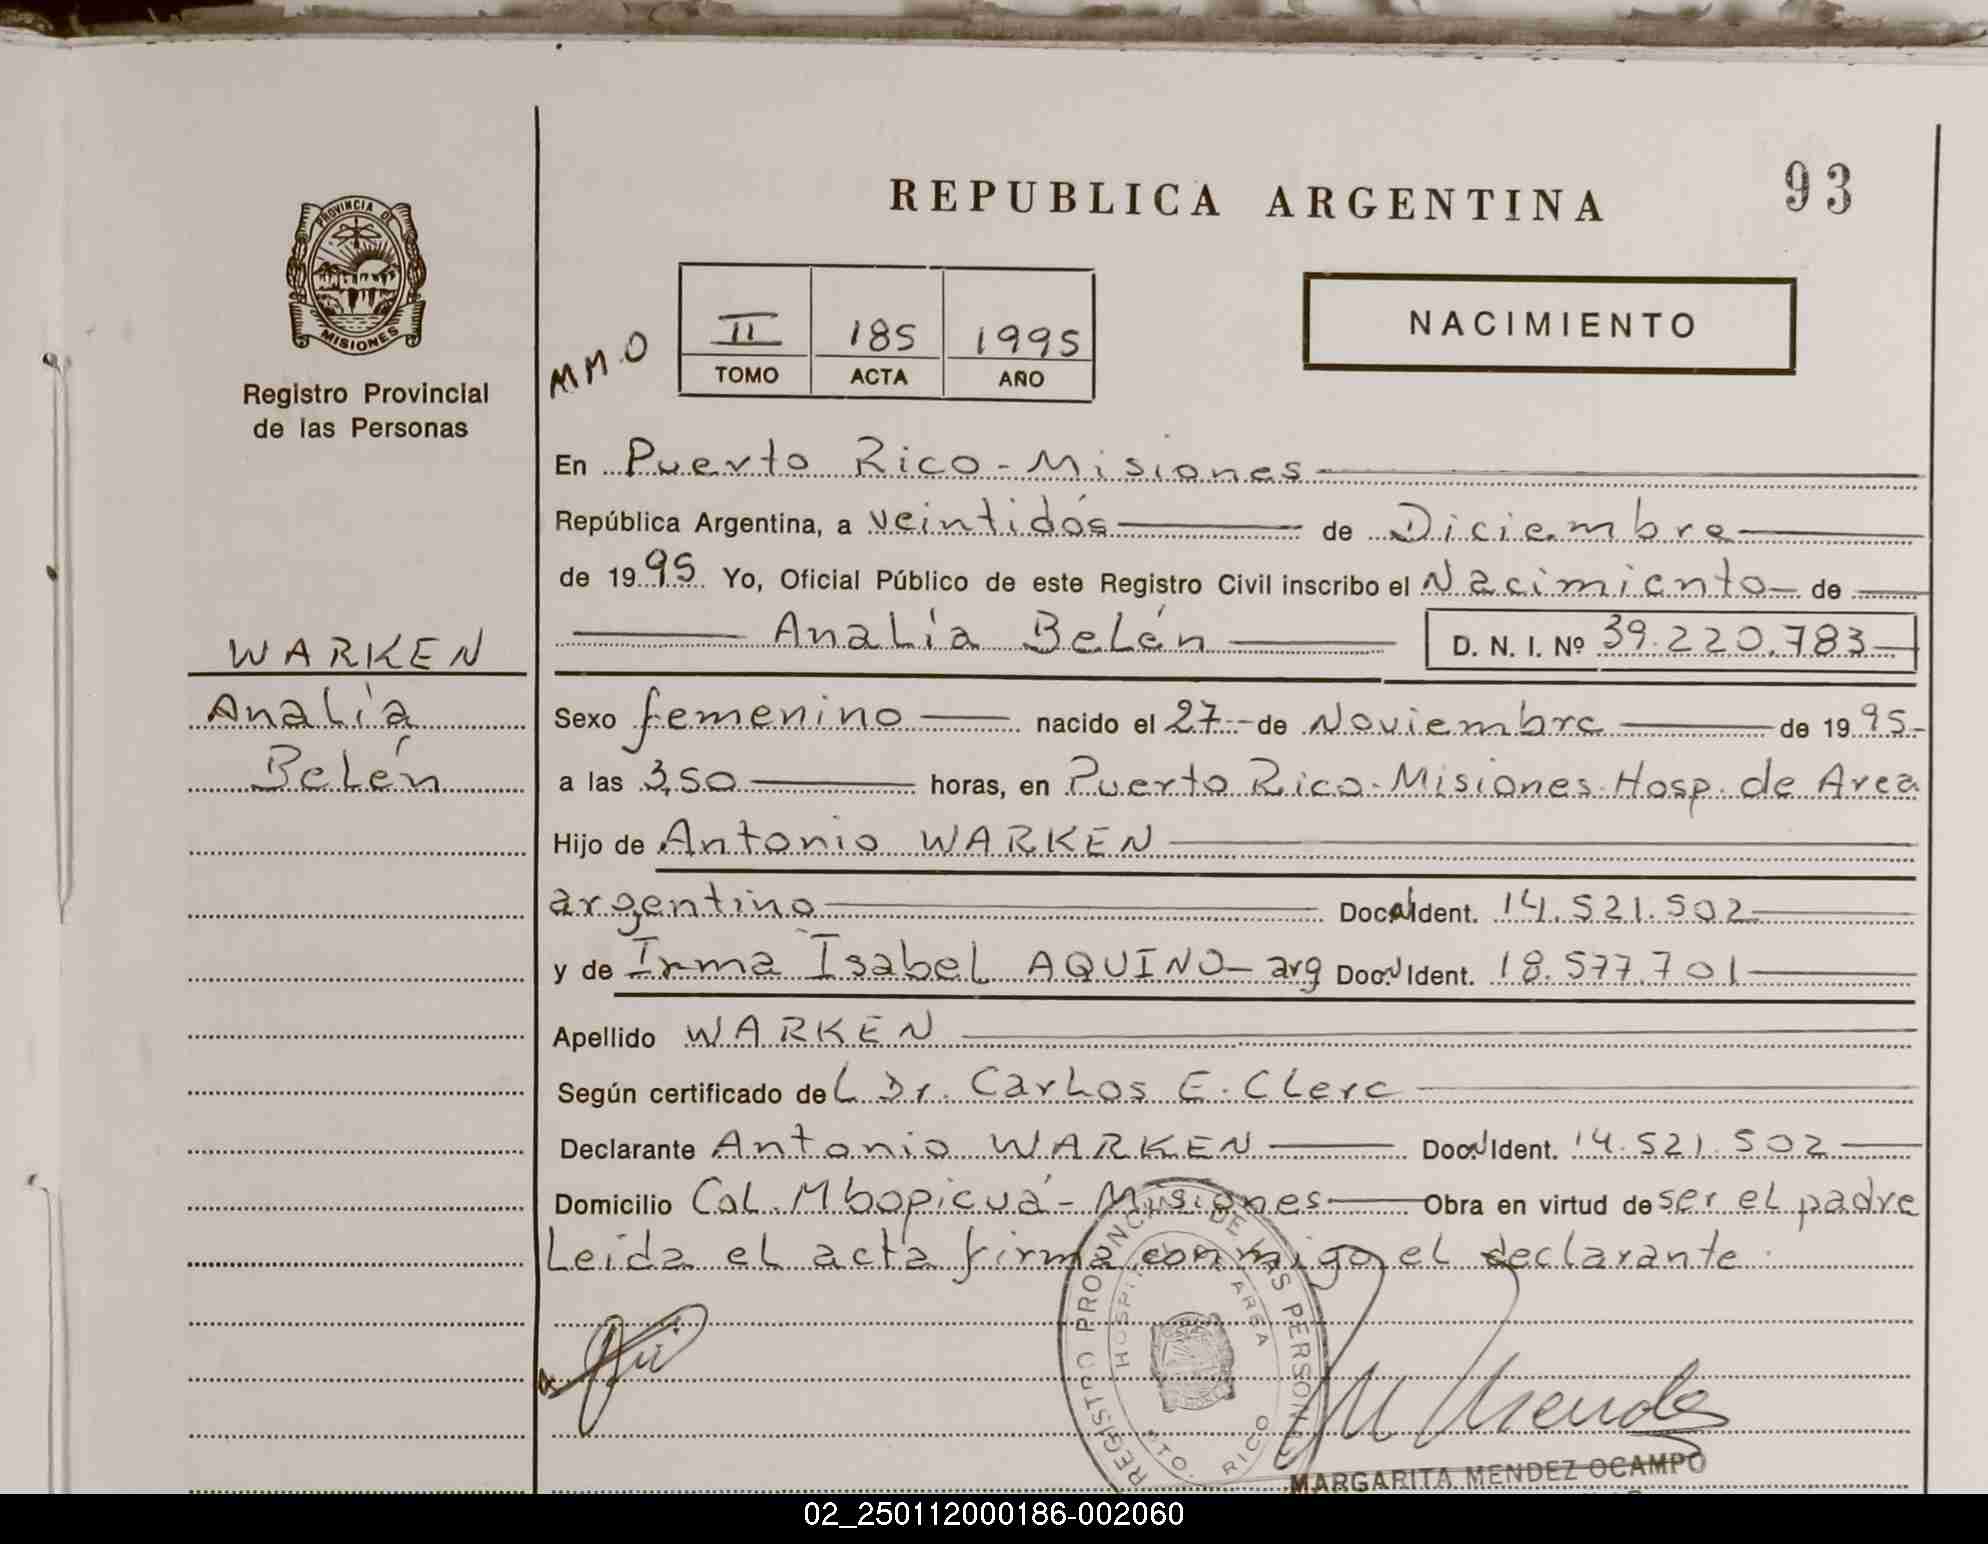 REPUBLICA ARGENTINA
93
PROVINCIA DE
MISIONES
Registro Provincial
de las Personas
MMO
II 185 1995
TOMO ACTA AÑO
NACIMIENTO
En Puerto Rico - Misiones
República Argentina, a veintidós de Diciembre
de 1995 Yo, Oficial Público de este Registro Civil inscribo el Nacimiento de
Analía Belén D. N. I. Nº 39.220.783
WARKEN
Analía
Belén
Sexo femenino nacido el 27 de Noviembre de 1995
a las 3,50 horas, en Puerto Rico-Misiones-Hosp. de Area
Hijo de Antonio WARKEN
argentino Doc. Ident. 14.521.502
y de Irma Isabel AQUINO - arg Doc. Ident. 18.577.701
Apellido WARKEN
Según certificado del Dr. Carlos E. Clerc
Declarante Antonio WARKEN Doc. Ident. 14.521.502
Domicilio Col. Mbopicuá - Misiones Obra en virtud de ser el padre
Leida el acta firma conmigo el declarante.
REGISTRO PROVINCIAL DE LAS PERSONAS
HOSPITAL DE AREA
PTO. RICO
M Mendez
MARGARITA MENDEZ OCAMPO
02_250112000186-002060